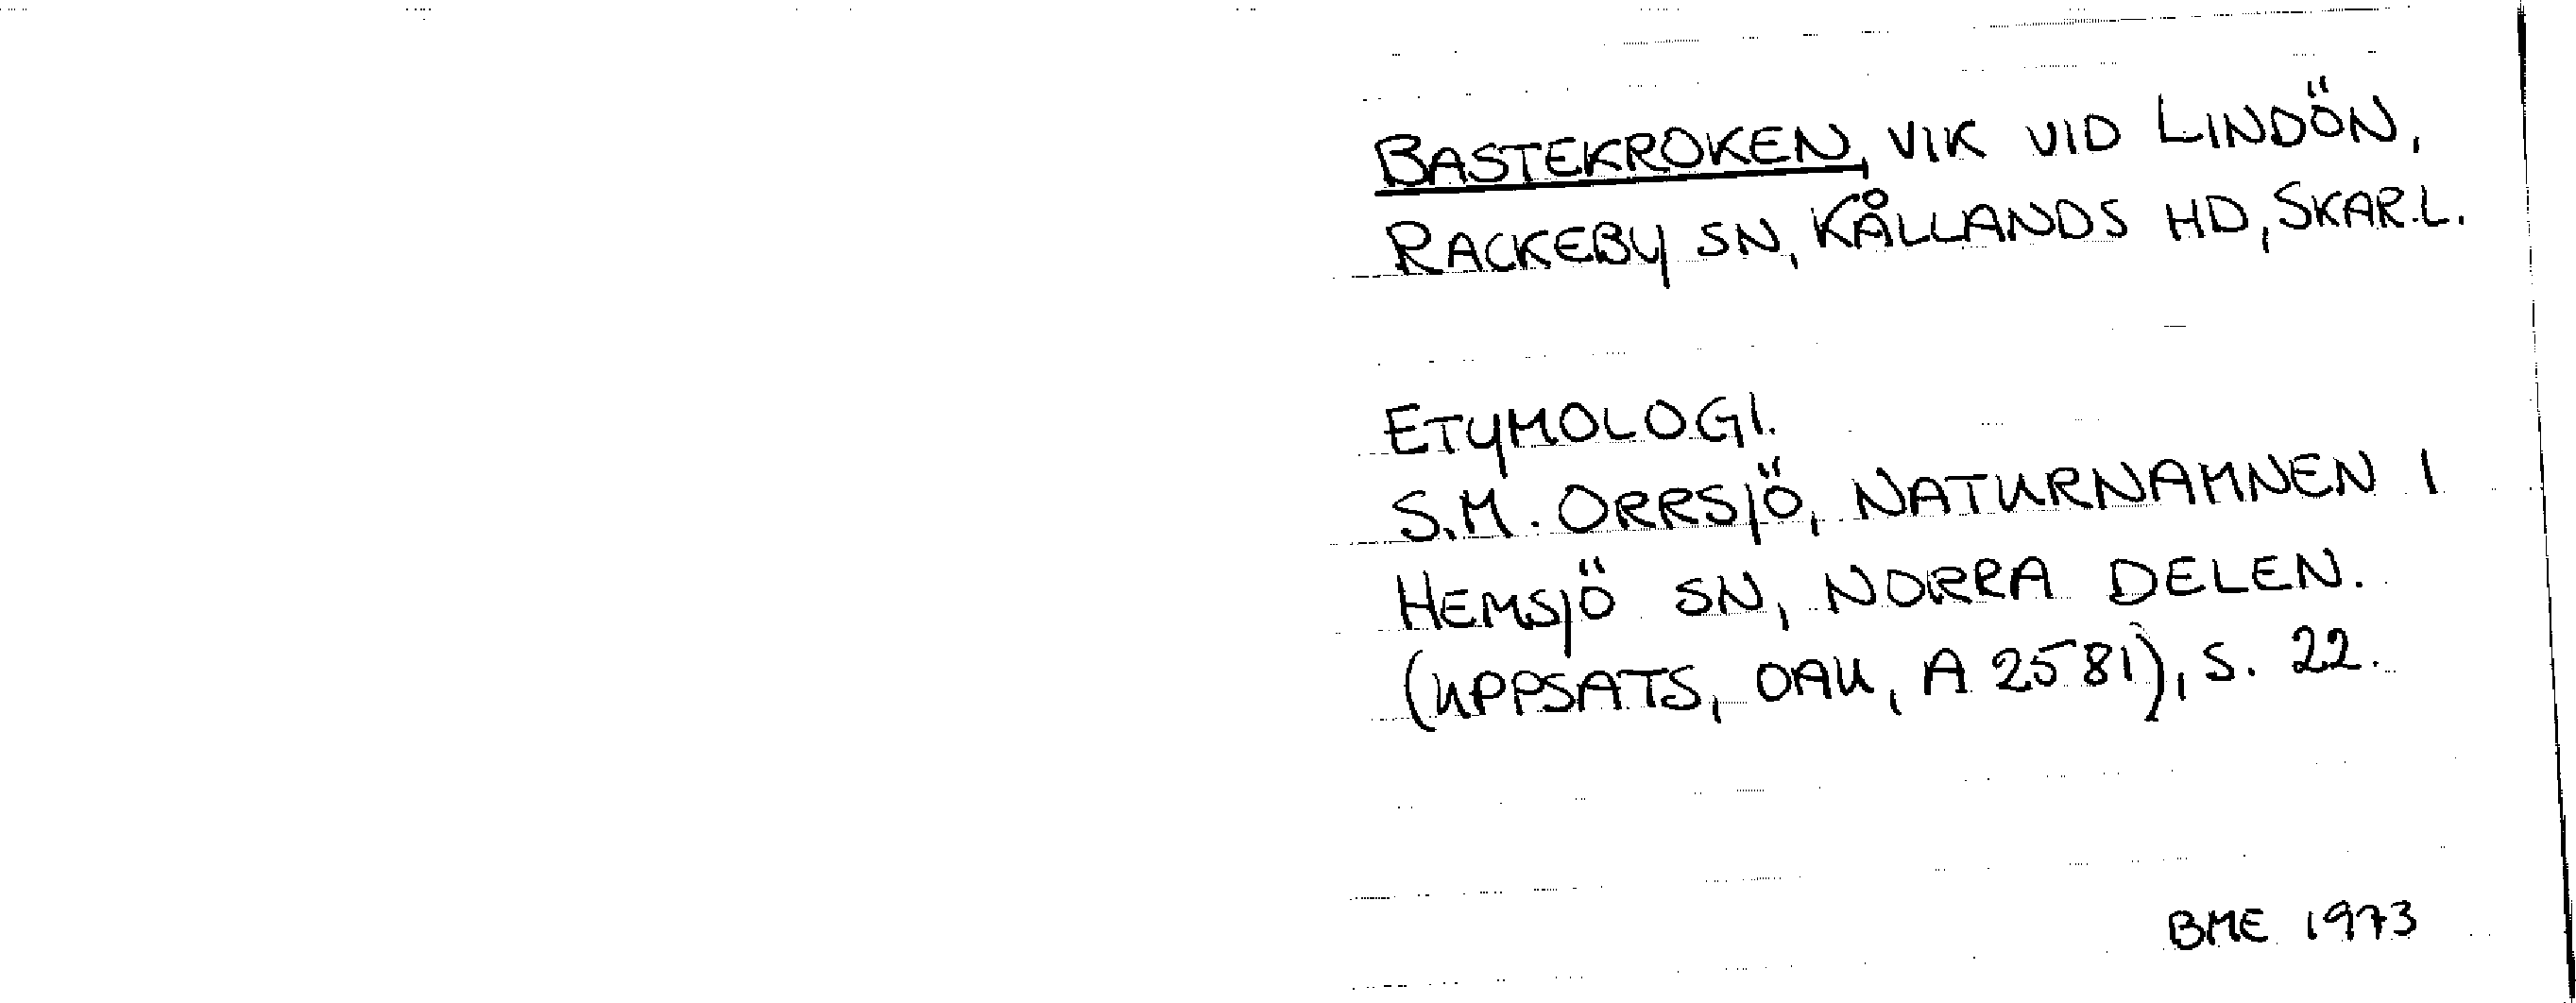 BASTEKROKEN, VIK VID LINDÖN,
RACKEBY SN, KÅLLANDS HD, SKAR.L.
ETYMOLOGI.
S.M. ORRSJÖ, NATURNAMNEN I
HEMSJÖ SN, NORRA DELEN.
(UPPSATS, OAU, A 2581), S. 22.
BME 1973